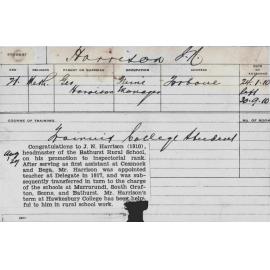 STUDENT
Harrison J.N.
SEX RELIGION PARENT OR GUARDIAN OCCUPATION ADDRESS DATE OF
Meth. Geo Mine Torbane 24-1-10
Harrison Manager left
20-9-10
COURSE OF TRAINING.
College Student
Congratulations to J. N. Harrison (1910),
headmaster of the Bathurst Rural School,
on his promotion to inspectorial rank.
After serving as first assistant at Cessnock
and Bega, Mr. Harrison was appointed
teacher at Delegate in 1917, and was sub-
sequently transferred in turn to the charge
of the schools at Murrurundi, South Graf-
ton, Scone, and Bathurst. Mr. Harrison's
term at Hawkesbury College has been help-
ful to him in rural school work.